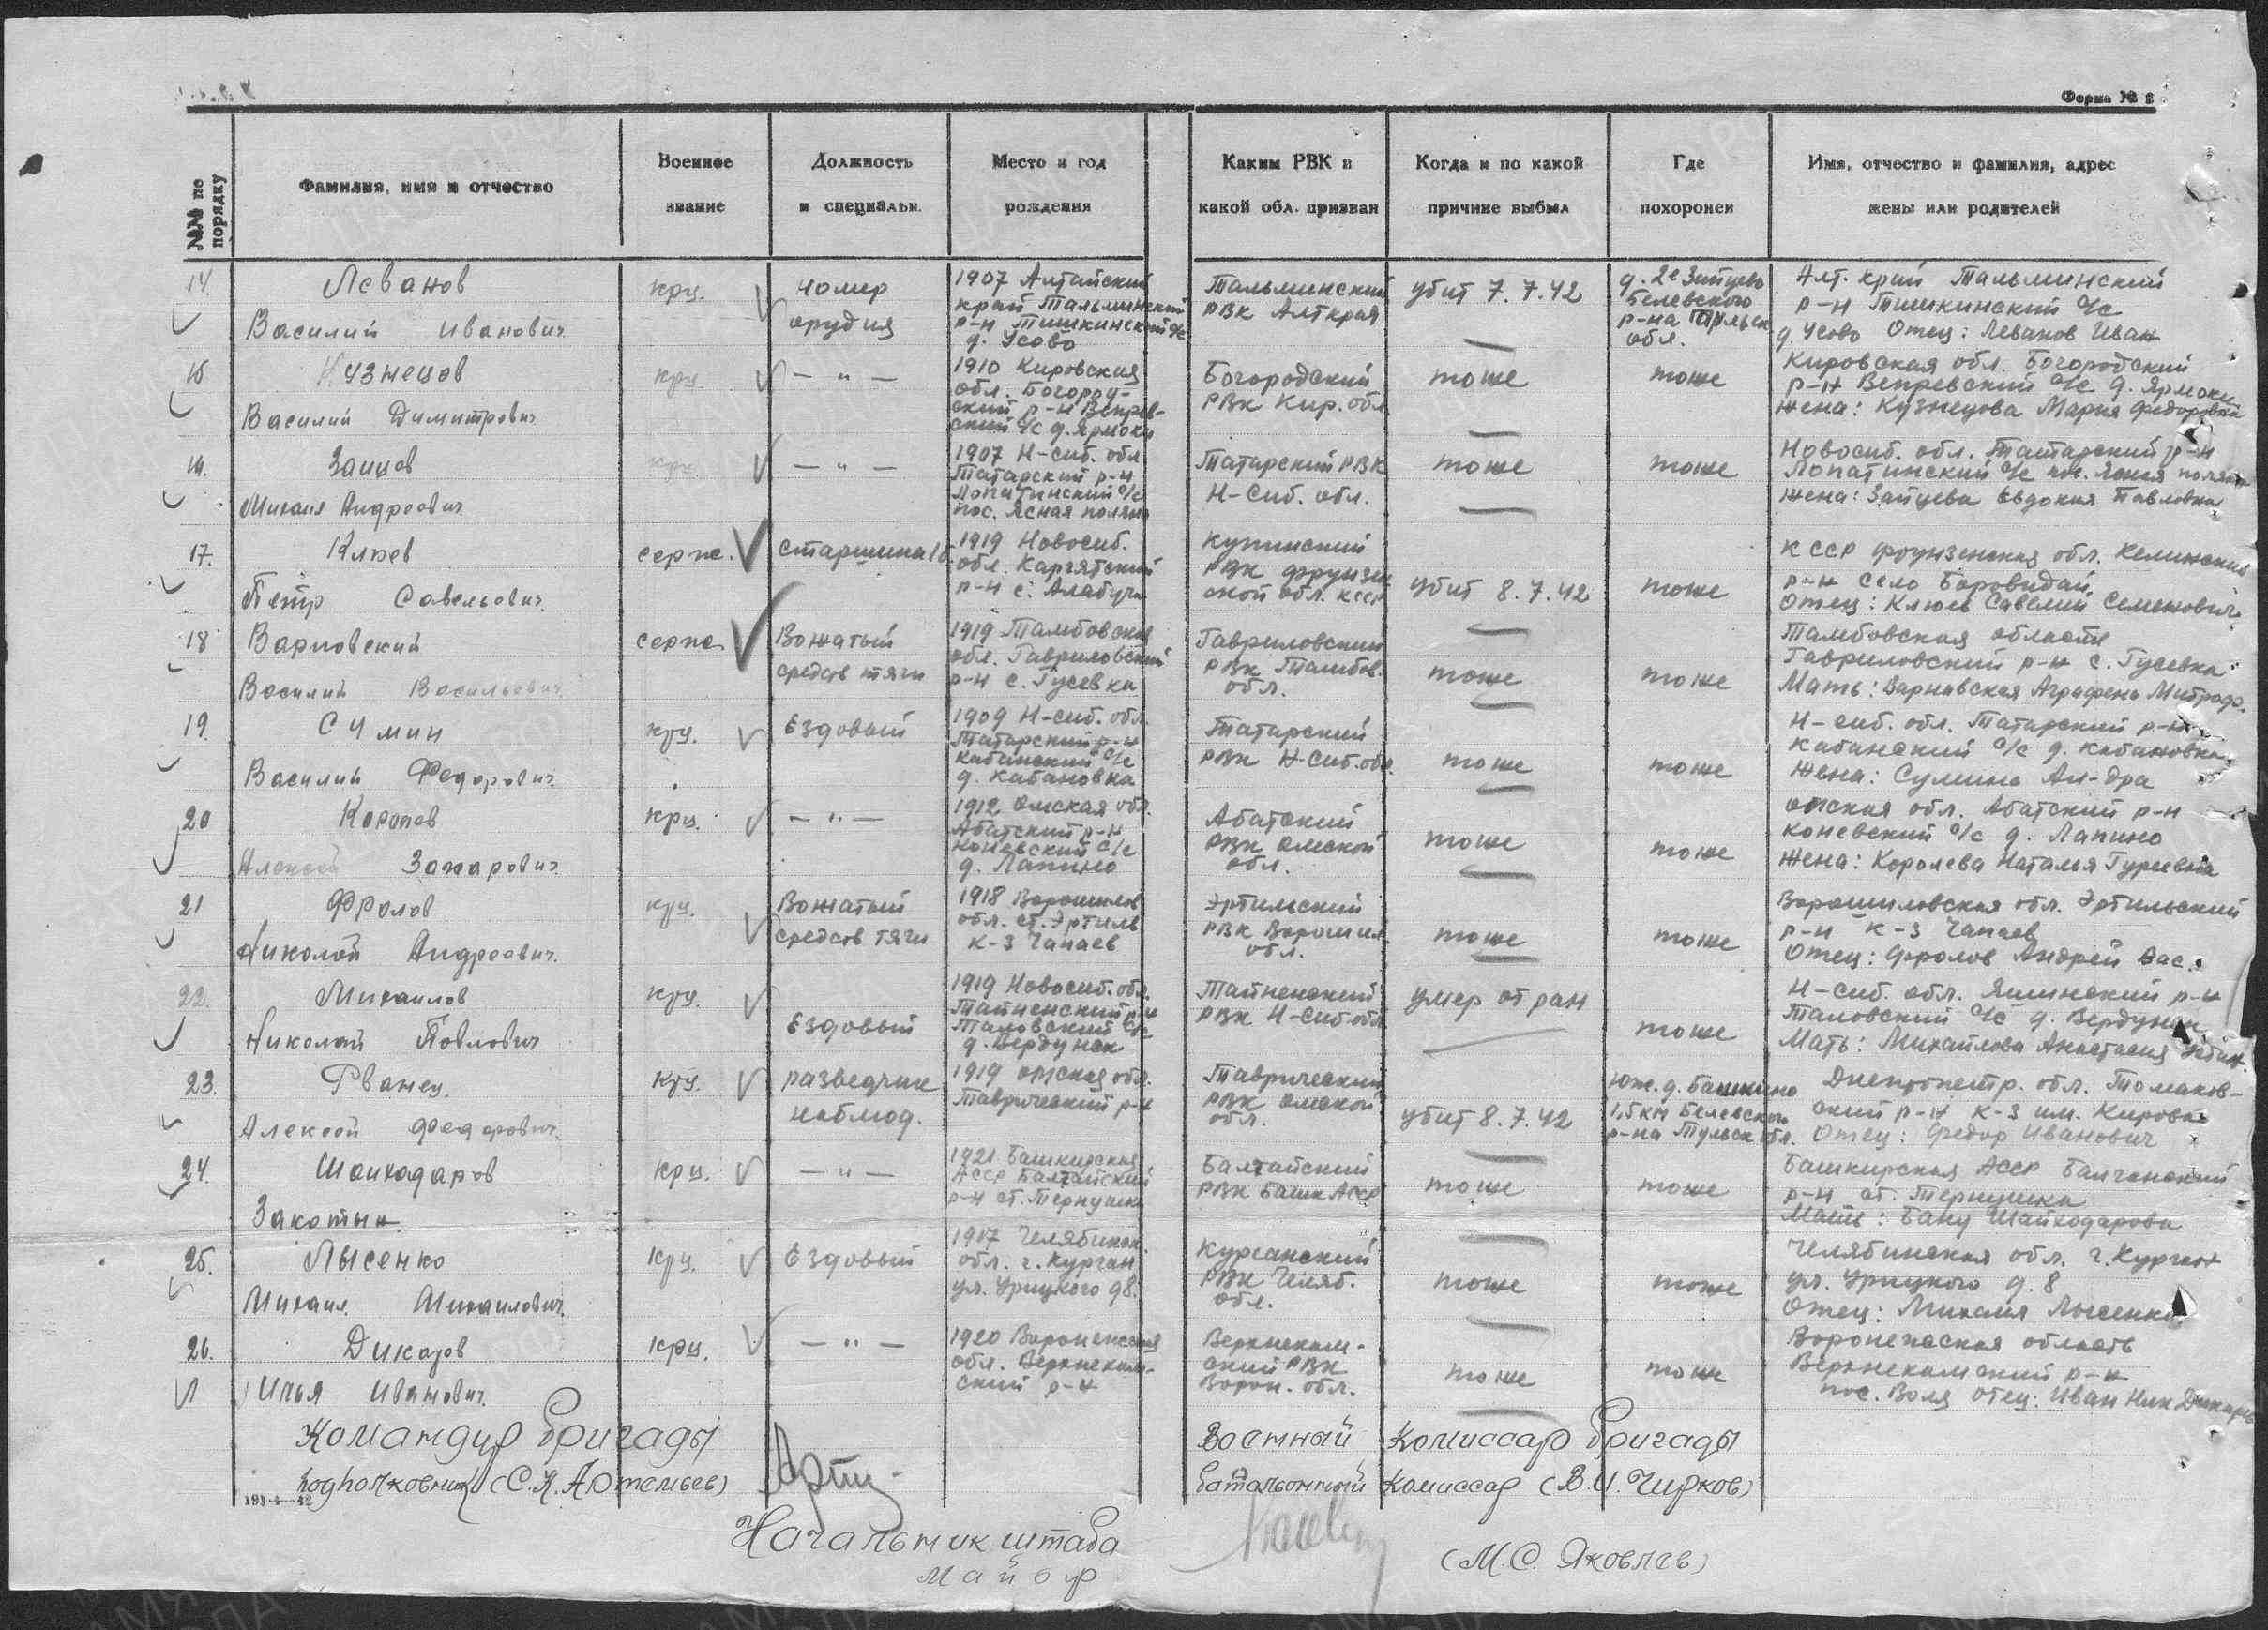 Форма № 2
№№ по порядку
Фамилия, имя и отчество
Военное звание
Должность и специальн.
Место и год рождения
Каким РВК и какой обл. призван
Когда и по какой причине выбыл
Где похоронен
Имя, отчество и фамилия, адрес жены или родителей
14.
Леванов
Василий Иванович
крц.
номер
орудия
1907 Алтайский
край Тальминский
р-н Тишкинский с/с
д. Усово
Тальминский
РВК Алт края
убит 7.7.42
д. 2е Зайцево
Белевского
р-на Тульск
обл.
Алт. край Тальминский
р-н Тишкинский с/с
д. Усово Отец: Леванов Иван
15
Кузнецов
Василий Димитрович
крц.
— " —
1910 Кировская
обл. Богород-
ский р-н Вепрев-
ский с/с д. Ярмоки
Богородский
РВК Кир. обл
тоже
тоже
Кировская обл. Богородский
р-н Вепревский с/с д. Ярмоки
жена: Кузнецова Мария Федоровна
16.
Зайцев
Михаил Андреевич
крц.
— " —
1907 Н-сиб. обл
Татарский р-н
Лопатинский с/с
пос. Ясная поляна
Татарский РВК
Н-Сиб. обл.
тоже
тоже
Новосиб. обл. Татарский р-н
Лопатинский с/с пос. Ясная поляна
жена: Зайцева Евдокия Павловна
17.
Клюев
Петр Савельевич
серж.
старшина
1919 Новосиб.
обл. Каргатский
р-н с. Алабуга
Купинский
РВК Фрунзен
ской обл. КССР
убит 8.7.42
тоже
КССР Фрунзенская обл. Келинский
р-н село Боровидай,
Отец: Клюев Савелий Семенович
18
Варновский
Василий Васильевич
серж
Вожатый
средств тяги
1919 Тамбовская
обл. Гавриловский
р-н с. Гусевка
Гавриловский
РВК Тамбов.
обл.
тоже
тоже
Тамбовская область
Гавриловский р-н с. Гусевка
Мать: Варнавская Аграфена Митроф.
19.
Сумин
Василий Федорович
крц.
Ездовый
1909 Н-сиб. обл.
Татарский р-н
Кабанский с/с
д. Кабановка
Татарский
РВК Н-Сиб.обл.
тоже
тоже
Н-сиб. обл. Татарский р-н
Кабанский с/с д. Кабановка
Жена: Сумина Ан-дра
20
Королев
Алексей Захарович
крц.
— " —
1912 Омская обл.
Абатский р-н
Коневский с/с
д. Лапино
Абатский
РВК Омской
обл.
тоже
тоже
Омская обл. Абатский р-н
Коневский с/с д. Лапино
Жена: Королева Наталья Гуреевна
21
Фролов
Николай Андреевич.
крц.
Вожатый
средств тяги
1918 Ворошилов
обл. ст. Эртиль
к-з Чапаев
Эртильский
РВК Ворошил.
обл.
тоже
тоже
Ворошиловская обл. Эртильский
р-н к-з Чапаев
Отец: Фролов Андрей Вас.
22.
Михаилов
Николай Павлович
крц.
Ездовый
1919 Новосиб. обл.
Тайненский р-н
Таловский с/с
д. Вердунск
Тайненский
РВК Н-Сиб обл
умер от ран
тоже
Н-сиб. обл. Яшинский р-н
Таловский с/с д. Вердунск
Мать: Михайлова Анастасия
23.
Рванец.
Алексей Федорович
крц.
разведчик
наблюд.
1919 Омская обл.
Таврический р-н
Таврический
РВК Омской
обл.
убит 8.7.42
Юж. д. Башкино
1,5 км Белевского
р-на Тульск обл.
Днепропетр. обл. Томаков-
ский р-н к-з им. Кирова
Отец: Федор Иванович
24.
Шайходаров
Закотын
крц.
— " —
1921 Башкирская
АССР Балтайский
р-н ст. Тернушка
Балтайский
РВК Башк АССР
тоже
тоже
Башкирская АССР Балтайский
р-н ст. Тернушка
Мать: Бану Шайходарова
25.
Лысенко
Михаил Михаилович.
крц.
Ездовый
1917 Челябинск.
обл. г. Курган
ул. Урицкого д8.
Курганский
РВК Челяб.
обл.
тоже
тоже
Челябинская обл. г. Курган
ул. Урицкого д. 8
Отец: Михаил Лысенко
26.
Дикарев
Илья Иванович.
крц.
— " —
1920 Воронежская
обл. Верхнехам-
ский р-н
Верхнехам-
ский РВК
Ворон. обл.
тоже
тоже
Воронежская область
Верхнехамский р-н
пос. Воля отец: Иван Ник Дикарев
Командир бригады
подполковник (С.К. Артемьев)
Военный комиссар бригады
батальонный комиссар (В.И. Чирков)
193-4—42
Начальник штаба
майор
(М.С. Яковлев)